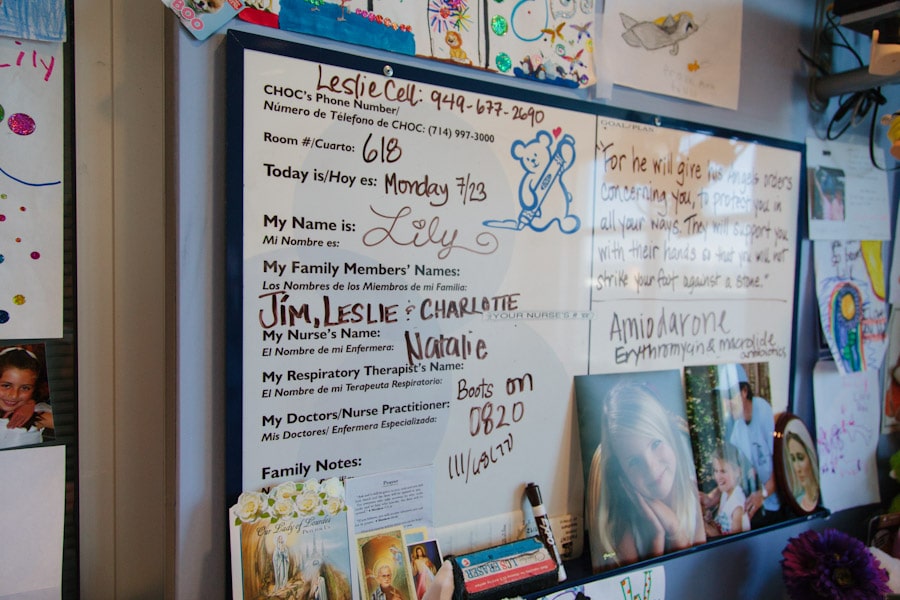 Lily
Leslie Cell: 949-677-2690
CHOC's Phone Number/
Número de Télefono de CHOC: (714) 997-3000
Room #/Cuarto: 618
Today is/Hoy es: Monday 7/23
My Name is: Lily
Mi Nombre es:
My Family Members' Names:
Los Nombres de los Miembros de mi Familia:
JIM, LESLIE & CHARLOTTE
My Nurse's Name:
El Nombre de mi Enfermera: Natalie
YOUR NURSE'S #
My Respiratory Therapist's Name:
El Nombre de mi Terapeuta Respiratorio:
My Doctors/Nurse Practitioner:
Mis Doctores/ Enfermera Especializada:
Boots on
0820
Family Notes:
GOAL/PLAN
"For he will give his Angels orders
concerning you, to protect you in
all your ways. They will support you
with their hands so that you will not
strike your foot against a stone."
Amiodarone
Erythromycin & macrolide
antibiotics
Our Lady of Lourdes
Prayer
ERASER